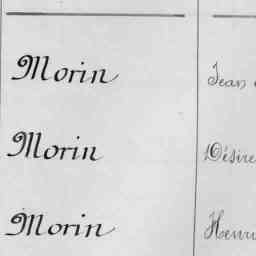 Morin Jean
Morin Désiré
Morin Henri